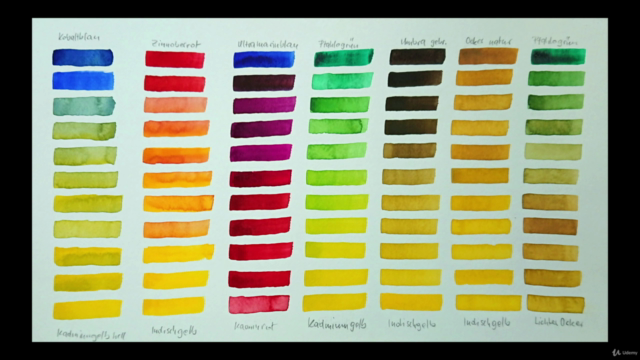 Kobaltblau
Zinnoberrot
Ultramarinblau
Phtalogrün
Umbra gebr.
Ocker natur
Phtalogrün
Kadmiumgelb hell
Indischgelb
Karminrot
Kadmiumgelb
Indischgelb
Indischgelb
Lichter Ocker
Udemy